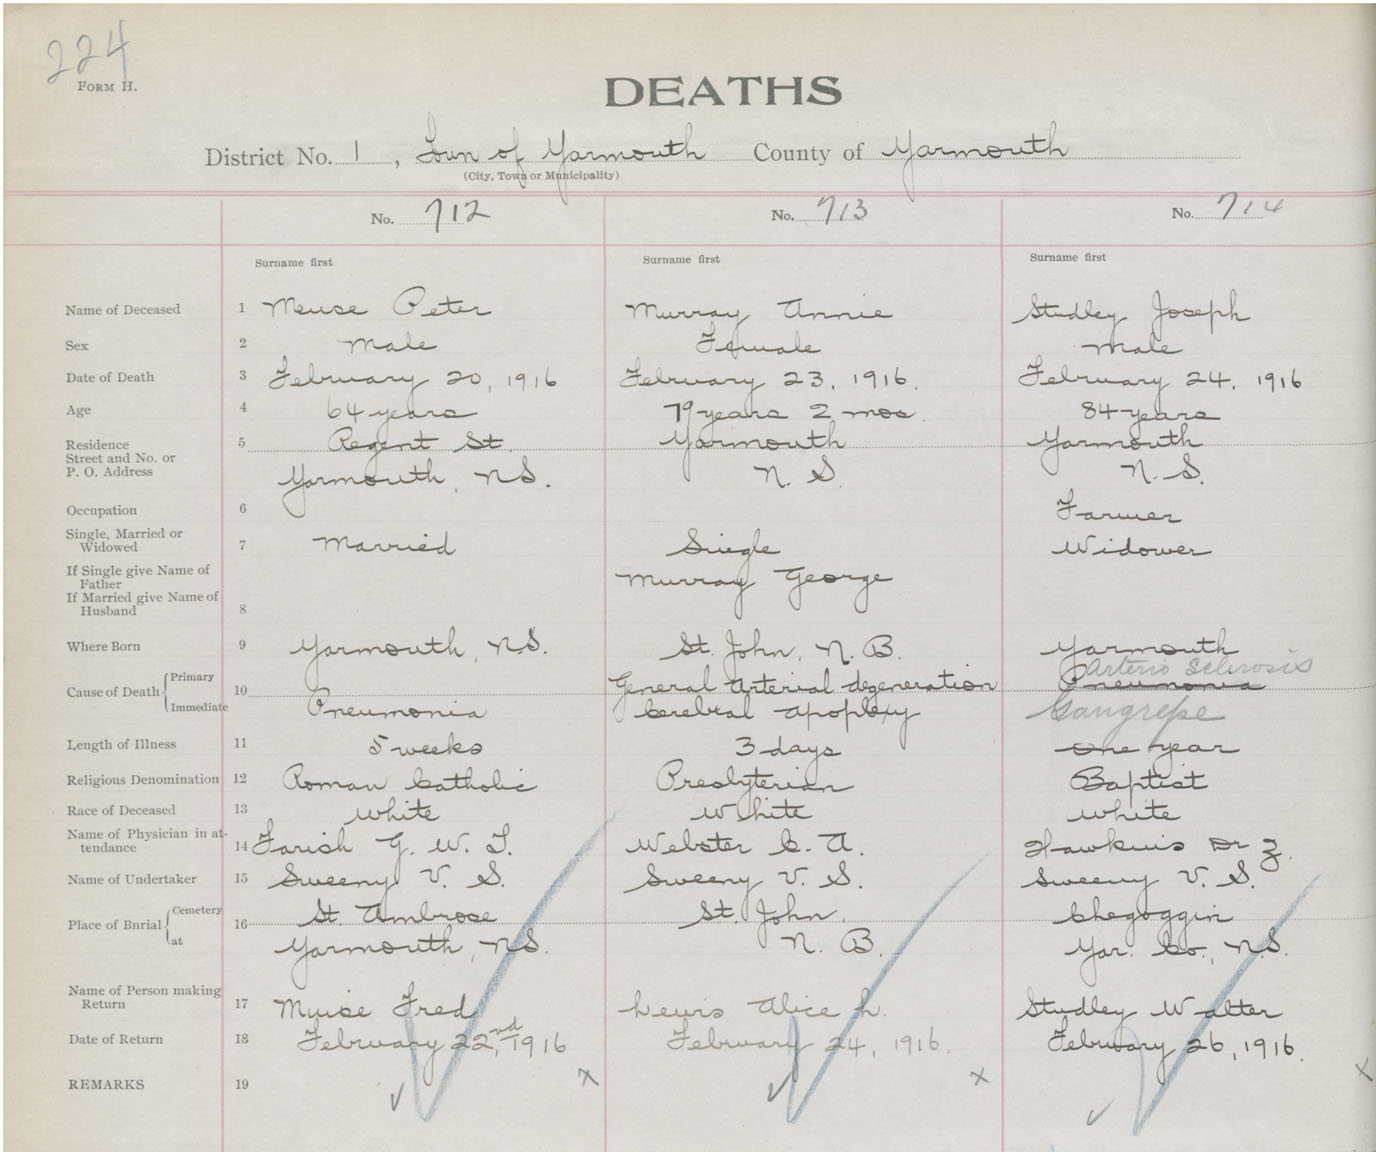 224
FORM H.
DEATHS
District No. 1, Town of Yarmouth County of Yarmouth
(City, Town or Municipality)
No. 712 No. 713 No. 714
Surname first Surname first Surname first
Name of Deceased 1 Meuse Peter Murray Annie Studley Joseph
Sex 2 Male Female Male
Date of Death 3 February 20, 1916 February 23, 1916. February 24, 1916
Age 4 64 years 79 years 2 mos. 84 years
Residence 5 Regent St. Yarmouth Yarmouth
Street and No. or
P. O. Address Yarmouth, N.S. N. S. N. S.
Occupation 6 Farmer
Single, Married or
Widowed 7 Married Single Widower
If Single give Name of
Father Murray George
If Married give Name of
Husband 8
Where Born 9 Yarmouth, N.S. St. John, N. B. Yarmouth
Arterio Sclerosis
Cause of Death Primary 10 General Arterial degeneration Pneumonia
Immediate Pneumonia Cerebral Apoplexy Gangrene
Length of Illness 11 5 weeks 3 days one year
Religious Denomination 12 Roman Catholic Presbyterian Baptist
Race of Deceased 13 White White White
Name of Physician in at-
tendance 14 Farish G. W. T. Webster C. A. Hawkins Dr Z.
Name of Undertaker 15 Sweeny V. S. Sweeny V. S. Sweeny V. S.
Place of Burial Cemetery 16 St. Ambrose St. John, Chegoggin
at Yarmouth, N.S. N. B. Yar. Co., N.S.
Name of Person making
Return 17 Muise Fred Lewis Alice L. Studley Walter
Date of Return 18 February 22nd, 1916 February 24, 1916. February 26, 1916.
REMARKS 19 x x x